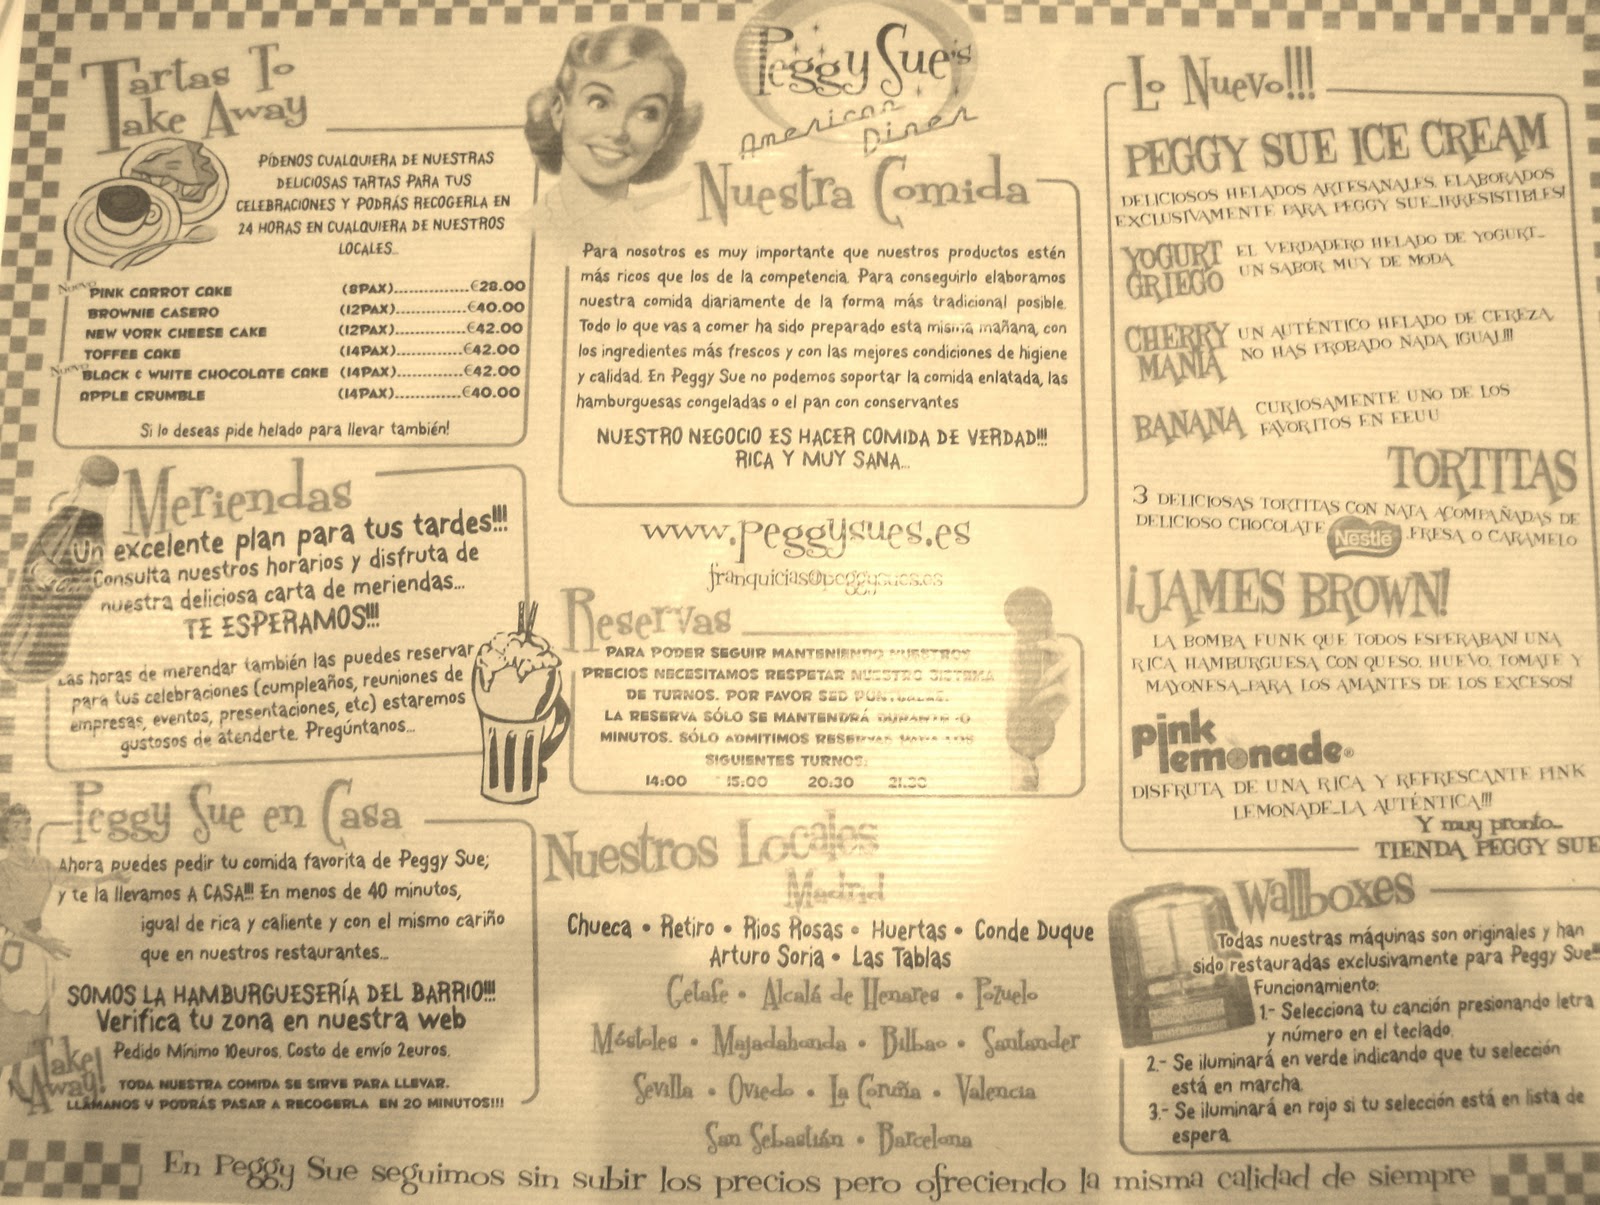 Tartas To
Take Away
PÍDENOS CUALQUIERA DE NUESTRAS
DELICIOSAS TARTAS PARA TUS
CELEBRACIONES Y PODRÁS RECOGERLA EN
24 HORAS EN CUALQUIERA DE NUESTROS
LOCALES...
Nuevo PINK CARROT CAKE (8PAX)..............€28.00
BROWNIE CASERO (12PAX).............€40.00
NEW YORK CHEESE CAKE (12PAX).............€42.00
TOFFEE CAKE (14PAX).............€42.00
Nuevo BLACK & WHITE CHOCOLATE CAKE (14PAX).............€42.00
APPLE CRUMBLE (14PAX).............€40.00
Si lo deseas pide helado para llevar también!
Meriendas
Un excelente plan para tus tardes!!!
Consulta nuestros horarios y disfruta de
nuestra deliciosa carta de meriendas...
TE ESPERAMOS!!!
Las horas de merendar también las puedes reservar
para tus celebraciones (cumpleaños, reuniones de
empresas, eventos, presentaciones, etc) estaremos
gustosos de atenderte. Pregúntanos...
Peggy Sue en Casa
Ahora puedes pedir tu comida favorita de Peggy Sue;
y te la llevamos A CASA!!! En menos de 40 minutos,
igual de rica y caliente y con el mismo cariño
que en nuestros restaurantes...
SOMOS LA HAMBURGUESERÍA DEL BARRIO!!!
Verifica tu zona en nuestra web
Pedido Mínimo 10euros. Costo de envío 2euros.
Take Away!
TODA NUESTRA COMIDA SE SIRVE PARA LLEVAR.
LLÁMANOS Y PODRÁS PASAR A RECOGERLA EN 20 MINUTOS!!!
Peggy Sue's
American
Diner
Nuestra Comida
Para nosotros es muy importante que nuestros productos estén
más ricos que los de la competencia. Para conseguirlo elaboramos
nuestra comida diariamente de la forma más tradicional posible.
Todo lo que vas a comer ha sido preparado esta misma mañana, con
los ingredientes más frescos y con las mejores condiciones de higiene
y calidad. En Peggy Sue no podemos soportar la comida enlatada, las
hamburguesas congeladas o el pan con conservantes
NUESTRO NEGOCIO ES HACER COMIDA DE VERDAD!!!
RICA Y MUY SANA...
www.peggysues.es
franquicias@peggysues.es
Reservas
PARA PODER SEGUIR MANTENIENDO NUESTROS
PRECIOS NECESITAMOS RESPETAR NUESTRO SISTEMA
DE TURNOS. POR FAVOR SED PUNTUALES.
LA RESERVA SÓLO SE MANTENDRÁ DURANTE
MINUTOS. SÓLO ADMITIMOS RESERVAS PARA LOS
SIGUIENTES TURNOS:
14:00 15:00 20:30 21:30
Nuestros Locales
Madrid
Chueca • Retiro • Rios Rosas • Huertas • Conde Duque
Arturo Soria • Las Tablas
Getafe • Alcalá de Henares • Pozuelo
Móstoles • Majadahonda • Bilbao • Santander
Sevilla • Oviedo • La Coruña • Valencia
San Sebastián • Barcelona
Lo Nuevo!!!
PEGGY SUE ICE CREAM
DELICIOSOS HELADOS ARTESANALES, ELABORADOS
EXCLUSIVAMENTE PARA PEGGY SUE...IRRESISTIBLES!
YOGURT GRIEGO EL VERDADERO HELADO DE YOGURT...
UN SABOR MUY DE MODA
CHERRY MANIA UN AUTÉNTICO HELADO DE CEREZA,
NO HAS PROBADO NADA IGUAL!!!
BANANA CURIOSAMENTE UNO DE LOS
FAVORITOS EN EEUU
TORTITAS
3 DELICIOSAS TORTITAS CON NATA ACOMPAÑADAS DE
DELICIOSO CHOCOLATE Nestlé ,FRESA O CARAMELO
¡JAMES BROWN!
LA BOMBA FUNK QUE TODOS ESPERABAN! UNA
RICA HAMBURGUESA CON QUESO, HUEVO, TOMATE Y
MAYONESA...PARA LOS AMANTES DE LOS EXCESOS!
pink
lemonade®
DISFRUTA DE UNA RICA Y REFRESCANTE PINK
LEMONADE...LA AUTÉNTICA!!!
Y muy pronto...
TIENDA PEGGY SUE
Wallboxes
Todas nuestras máquinas son originales y han
sido restauradas exclusivamente para Peggy Sue!!!
Funcionamiento:
1.- Selecciona tu canción presionando letra
y número en el teclado.
2.- Se iluminará en verde indicando que tu selección
está en marcha.
3.- Se iluminará en rojo si tu selección está en lista de
espera.
En Peggy Sue seguimos sin subir los precios pero ofreciendo la misma calidad de siempre